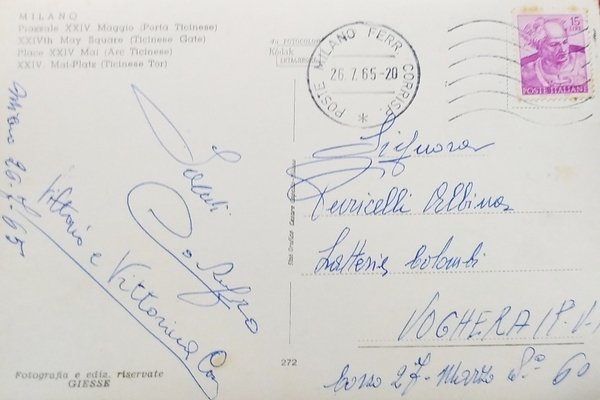 MILANO
Piazzale XXIV Maggio (Porta Ticinese)
XXIVth May Square (Ticinese Gate)
Place XXIV Mai (Arc Ticinese)
XXIV. Mai-Platz (Ticinese Tor)
Milano 26-7-65
Saluti
Vittorio e Vittorina
Fotografia e ediz. riservate
GIESSE
272
Kodak
EKTACHROME
POSTE MILANO FERR. CORRISP.
26.7.65-20
15
POSTE ITALIANE
Signora
Albina
Latteria Colombi
VOGHERA (P.V.
Corso 27-Marzo 60